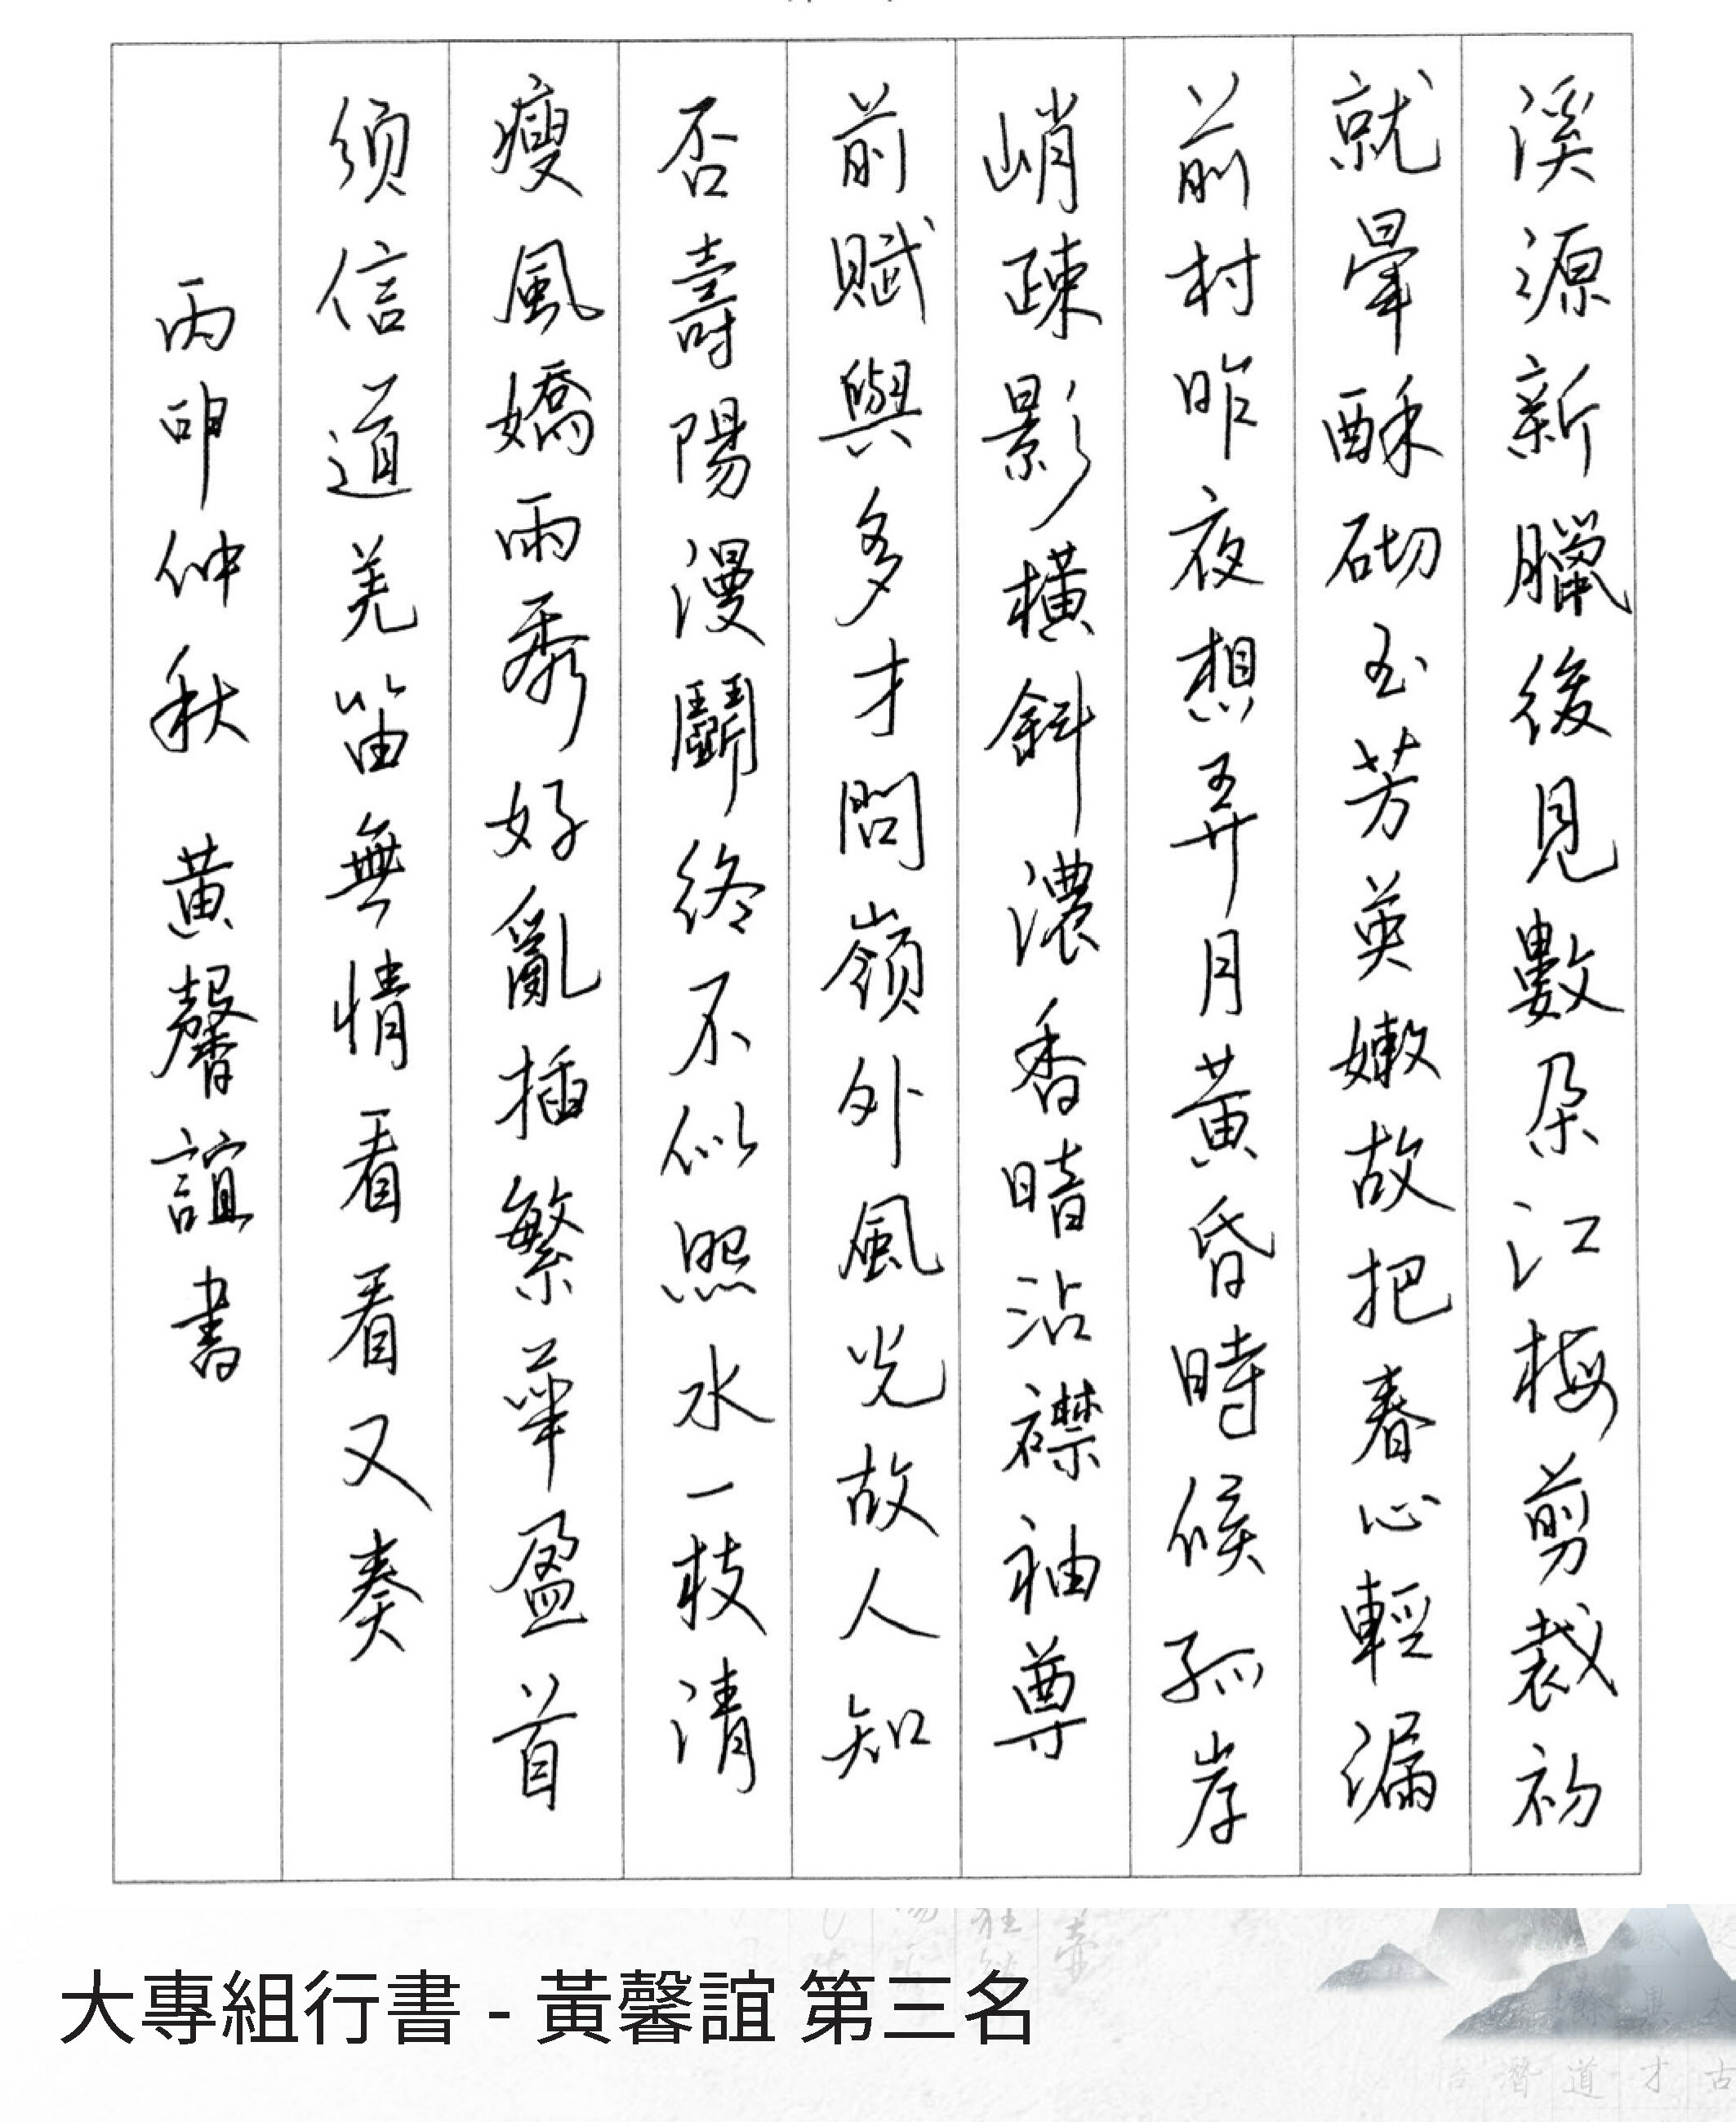 溪源新臘後見數朵江梅剪裁初
就暈酥砌玉芳英嫩故把春心輕漏
前村昨夜想弄月黃昏時候孤岸
峭疎影橫斜濃香暗沾襟袖尊
前賦與多才問嶺外風光故人知
否壽陽漫鬭終不似照水一枝清
瘦風嬌雨秀好亂插繁華盈首
須信道羌笛無情看看又奏
丙申仲秋 黃馨誼書
大專組行書 - 黃馨誼 第三名